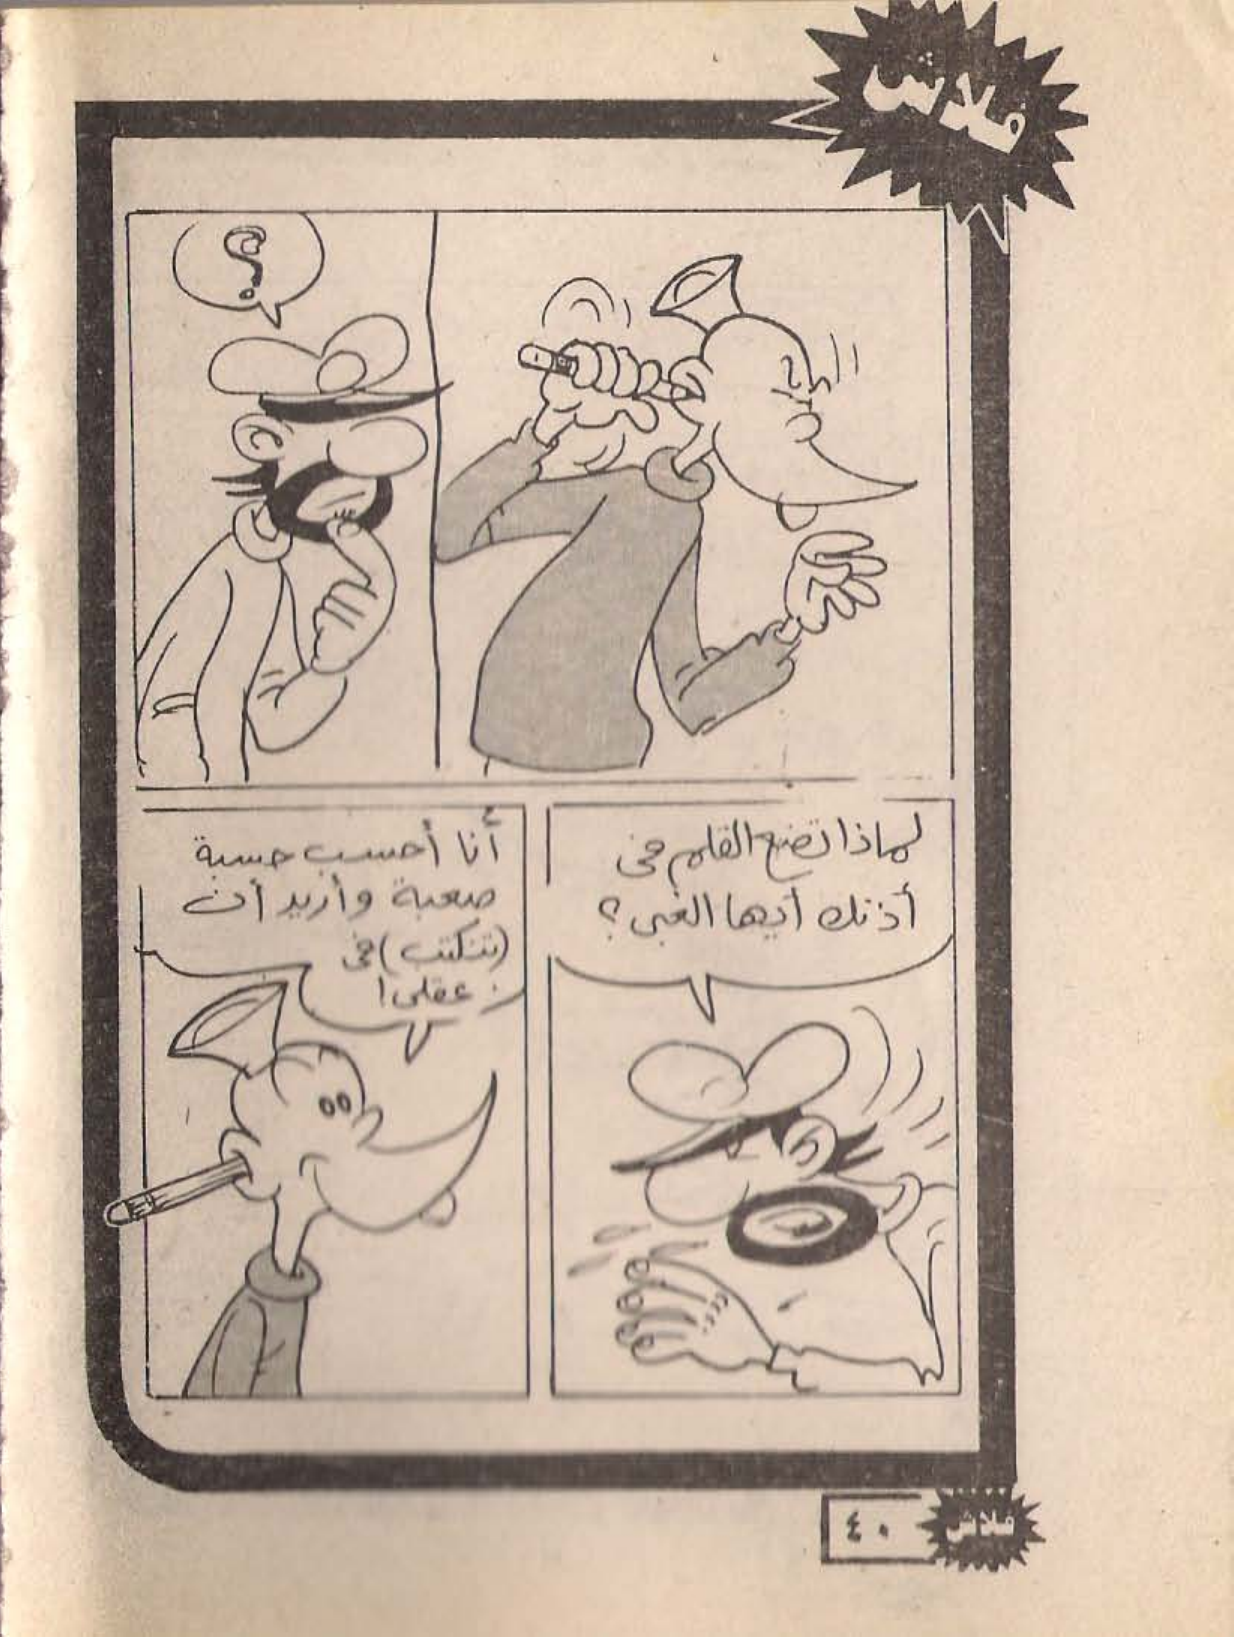 فلاش
؟
لماذا تضع القلم فى
أذنك أيها الغبى؟
أنا أحسب حسبة
صعبة وأريد أن
(تتكتب) فى
عقلى!
٤٠
فلاش